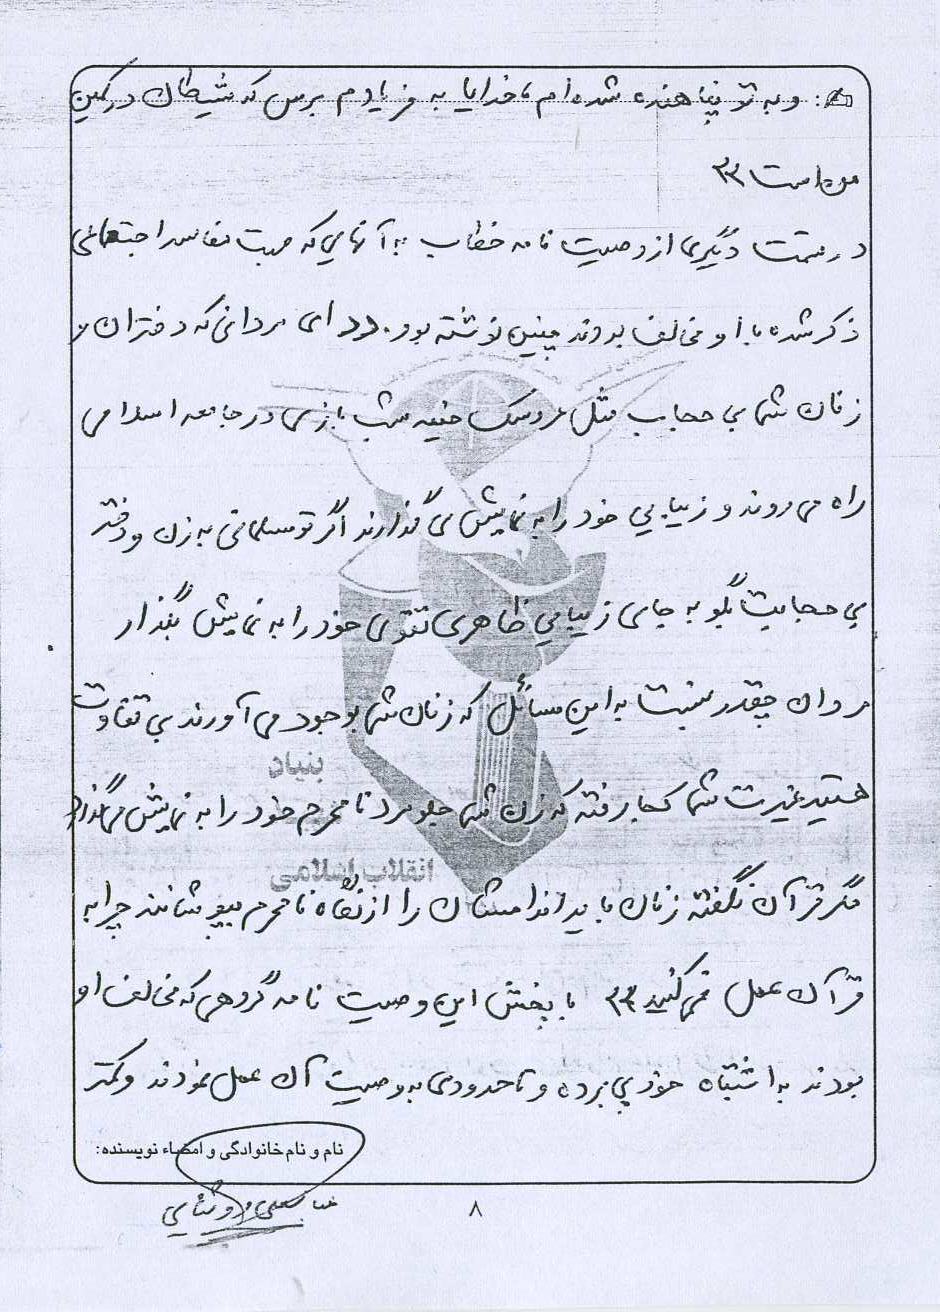 : و به تو پناهنده شده ام، خدایا به فریادم برس که شیطان در کمین
من است »
در قسمت دیگری از وصیت نامه خطاب به آنهایی که صحبت مفاسد اجتماعی
ذکر شده با او مخالف بودند چنین نوشته بود. «ای مردانی که دختران و
زنان شما بی حجاب مثل عروسک خیمه شب بازی در جامعه اسلامی
راه می روند و زیبایی خود را به نمایش می گذارند اگر تو مسلمانی به زن و دختر
بی حجابت بگو به جای زیبایی ظاهری تقوی خود را به نمایش بگذار
مردان چقدر نسبت به این مسائل که زنان شما بوجود می آورند بی تفاوت
هستید غیرت شما کجا رفته که زن شما جلو مرد نامحرم خود را به نمایش می گذارد
مگر قرآن نگفته زنان باید اندامشان را از نگاه نامحرم بپوشانند چرا به
قرآن عمل نمی کنید » با پخش این وصیت نامه گروهی که مخالف او
بودند به اشتباه خود پی برده و تا حدودی به وصیت آن عمل نمودند و کمتر
بنیاد
انقلاب اسلامی
نام و نام خانوادگی و امضاء نویسنده:
۸